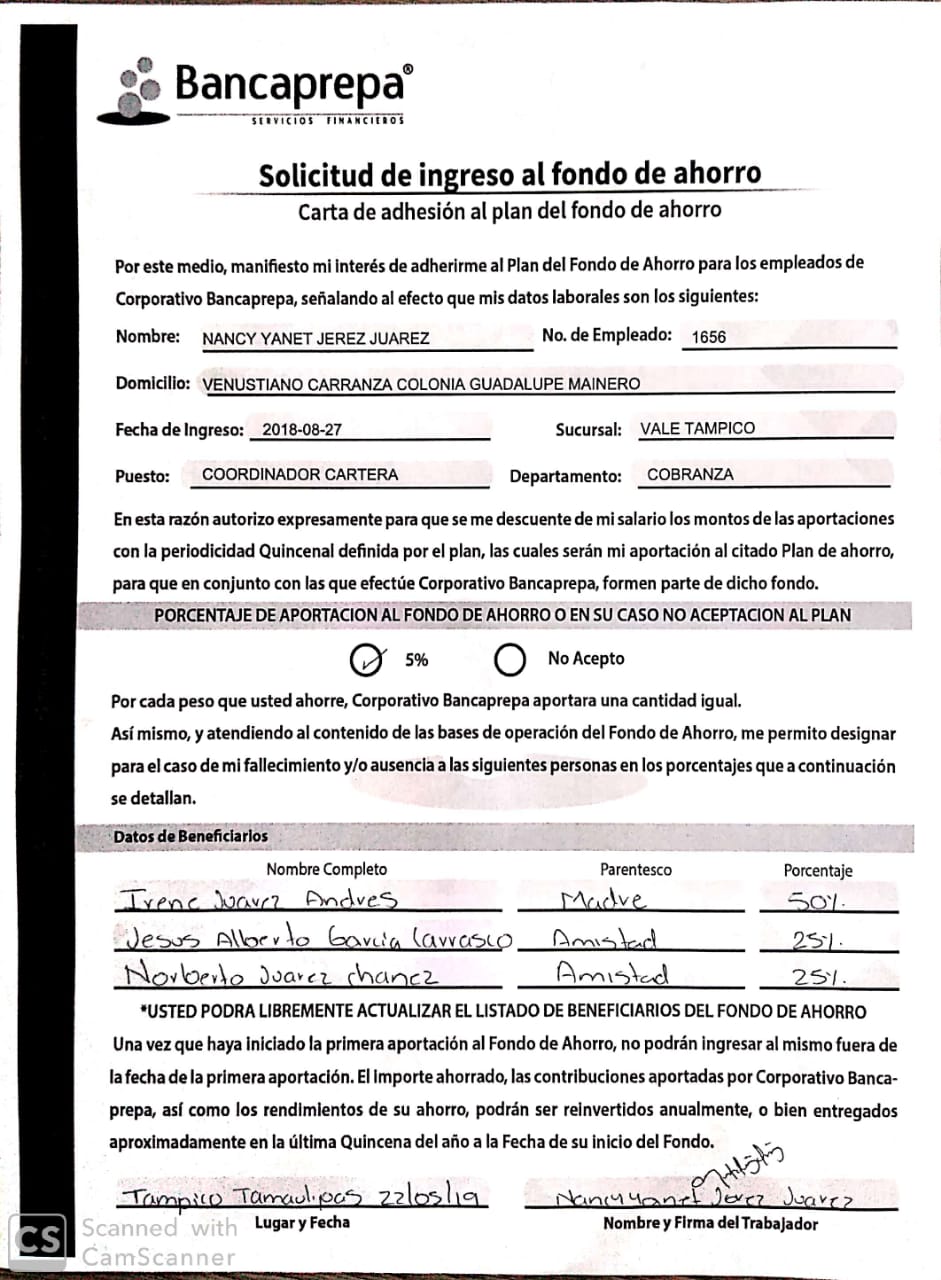 Bancaprepa®
SERVICIOS FINANCIEROS
Solicitud de ingreso al fondo de ahorro
Carta de adhesión al plan del fondo de ahorro
Por este medio, manifiesto mi interés de adherirme al Plan del Fondo de Ahorro para los empleados de
Corporativo Bancaprepa, señalando al efecto que mis datos laborales son los siguientes:
Nombre: NANCY YANET JEREZ JUAREZ No. de Empleado: 1656
Domicilio: VENUSTIANO CARRANZA COLONIA GUADALUPE MAINERO
Fecha de Ingreso: 2018-08-27 Sucursal: VALE TAMPICO
Puesto: COORDINADOR CARTERA Departamento: COBRANZA
En esta razón autorizo expresamente para que se me descuente de mi salario los montos de las aportaciones
con la periodicidad Quincenal definida por el plan, las cuales serán mi aportación al citado Plan de ahorro,
para que en conjunto con las que efectúe Corporativo Bancaprepa, formen parte de dicho fondo.
PORCENTAJE DE APORTACION AL FONDO DE AHORRO O EN SU CASO NO ACEPTACION AL PLAN
5% No Acepto
Por cada peso que usted ahorre, Corporativo Bancaprepa aportara una cantidad igual.
Así mismo, y atendiendo al contenido de las bases de operación del Fondo de Ahorro, me permito designar
para el caso de mi fallecimiento y/o ausencia a las siguientes personas en los porcentajes que a continuación
se detallan.
Datos de Beneficiarios
Nombre Completo Parentesco Porcentaje
Irene Juarez Andres Madre 50%.
Jesus Alberto Garcia Carrasco Amistad 25%.
Norberto Juarez chanez Amistad 25%.
*USTED PODRA LIBREMENTE ACTUALIZAR EL LISTADO DE BENEFICIARIOS DEL FONDO DE AHORRO
Una vez que haya iniciado la primera aportación al Fondo de Ahorro, no podrán ingresar al mismo fuera de
la fecha de la primera aportación. El Importe ahorrado, las contribuciones aportadas por Corporativo Banca-
prepa, así como los rendimientos de su ahorro, podrán ser reinvertidos anualmente, o bien entregados
aproximadamente en la última Quincena del año a la Fecha de su inicio del Fondo.
Tampico Tamaulipas 22/05/19 Nancy Yanet Jerez Juarez
Lugar y Fecha Nombre y Firma del Trabajador
CS Scanned with
CamScanner